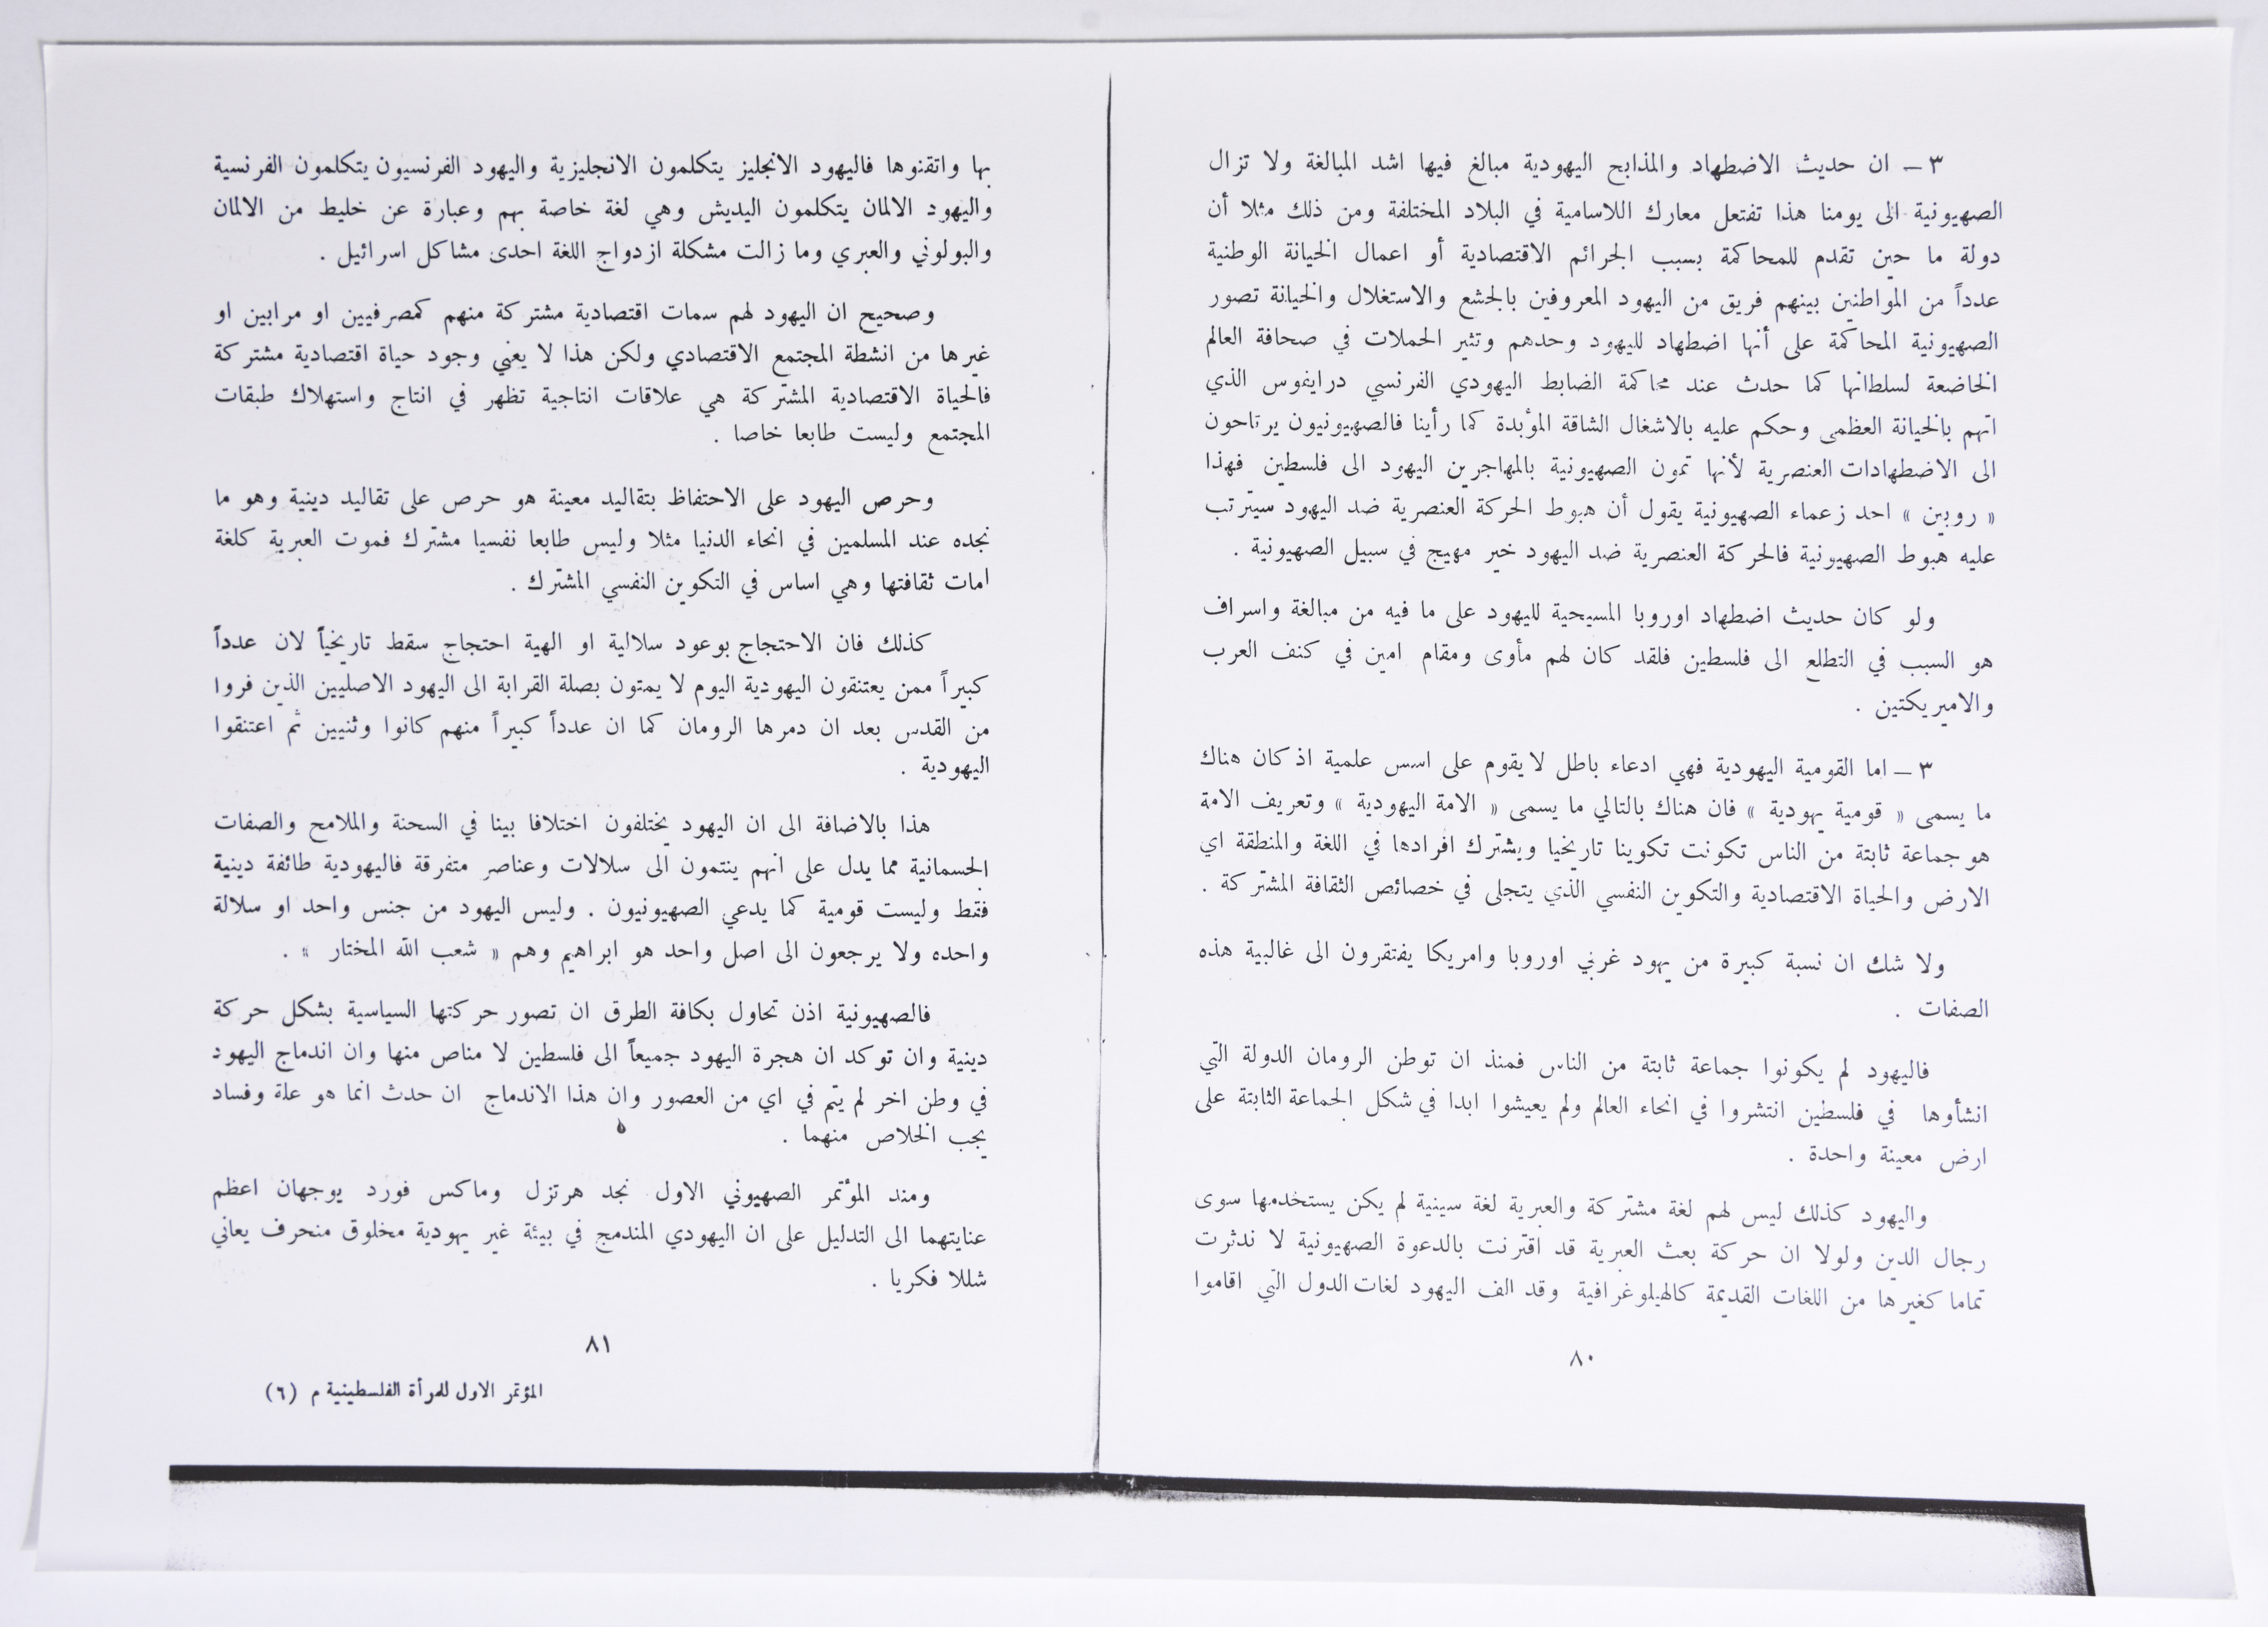 ٣ ـ ان حديث الاضطهاد والمذابح اليهودية مبالغ فيها اشد المبالغة ولا تزال
الصهيونية الى يومنا هذا تفتعل معارك اللاسامية في البلاد المختلفة ومن ذلك مثلا أن
دولة ما حين تقدم للمحاكمة بسبب الجرائم الاقتصادية أو اعمال الخيانة الوطنية
عدداً من المواطنين بينهم فريق من اليهود المعروفين بالجشع والاستغلال والخيانة تصور
الصهيونية المحاكمة على أنها اضطهاد لليهود وحدهم وتثير الحملات في صحافة العالم
الخاضعة لسلطانها كما حدث عند محاكمة الضابط اليهودي الفرنسي درايفوس الذي
اتهم بالخيانة العظمى وحكم عليه بالاشغال الشاقة المؤبدة كما رأينا فالصهيونيون يرتاحون
الى الاضطهادات العنصرية لأنها تمون الصهيونية بالمهاجرين اليهود الى فلسطين فهذا
« روبين » احد زعماء الصهيونية يقول أن هبوط الحركة العنصرية ضد اليهود سيترتب
عليه هبوط الصهيونية فالحركة العنصرية ضد اليهود خير مهيج في سبيل الصهيونية .
ولو كان حديث اضطهاد اوروبا المسيحية لليهود على ما فيه من مبالغة واسراف
هو السبب في التطلع الى فلسطين فلقد كان لهم مأوى ومقام امين في كنف العرب
والاميريكتين .
٣ ـ اما القومية اليهودية فهي ادعاء باطل لا يقوم على اسس علمية اذ كان هناك
ما يسمى « قومية يهودية » فان هناك بالتالي ما يسمى « الامة اليهودية » وتعريف الامة
هو جماعة ثابتة من الناس تكونت تكوينا تاريخيا ويشترك افرادها في اللغة والمنطقة اي
الارض والحياة الاقتصادية والتكوين النفسي الذي يتجلى في خصائص الثقافة المشتركة .
ولا شك ان نسبة كبيرة من يهود غربي اوروبا وامريكا يفتقرون الى غالبية هذه
الصفات .
فاليهود لم يكونوا جماعة ثابتة من الناس فمنذ ان توطن الرومان الدولة التي
انشأوها في فلسطين انتشروا في انحاء العالم ولم يعيشوا ابدا في شكل الجماعة الثابتة على
ارض معينة واحدة .
واليهود كذلك ليس لهم لغة مشتركة والعبرية لغة سينية لم يكن يستخدمها سوى
رجال الدين ولولا ان حركة بعث العبرية قد اقترنت بالدعوة الصهيونية لا ندثرت
تماما كغيرها من اللغات القديمة كالهيلوغرافية وقد الف اليهود لغات الدول التي اقاموا
٨٠
بها واتقنوها فاليهود الانجليز يتكلمون الانجليزية واليهود الفرنسيون يتكلمون الفرنسية
واليهود الالمان يتكلمون اليديش وهي لغة خاصة بهم وعبارة عن خليط من الالمان
والبولوني والعبري وما زالت مشكلة ازدواج اللغة احدى مشاكل اسرائيل .
وصحيح ان اليهود لهم سمات اقتصادية مشتركة منهم كمصرفيين او مرابين او
غيرها من انشطة المجتمع الاقتصادي ولكن هذا لا يعني وجود حياة اقتصادية مشتركة
فالحياة الاقتصادية المشتركة هي علاقات انتاجية تظهر في انتاج واستهلاك طبقات
المجتمع وليست طابعا خاصا .
وحرص اليهود على الاحتفاظ بتقاليد معينة هو حرص على تقاليد دينية وهو ما
نجده عند المسلمين في انحاء الدنيا مثلا وليس طابعا نفسيا مشترك فموت العبرية كلغة
امات ثقافتها وهي اساس في التكوين النفسي المشترك .
كذلك فان الاحتجاج بوعود سلالية او الهية احتجاج سقط تاريخياً لان عدداً
كبيراً ممن يعتنقون اليهودية اليوم لا يمتون بصلة القرابة الى اليهود الاصليين الذين فروا
من القدس بعد ان دمرها الرومان كما ان عدداً كبيراً منهم كانوا وثنيين ثم اعتنقوا
اليهودية .
هذا بالاضافة الى ان اليهود يختلفون اختلافا بينا في السحنة والملامح والصفات
الجسمانية مما يدل على انهم ينتمون الى سلالات وعناصر متفرقة فاليهودية طائفة دينية
فقط وليست قومية كما يدعي الصهيونيون . وليس اليهود من جنس واحد او سلالة
واحده ولا يرجعون الى اصل واحد هو ابراهيم وهم « شعب الله المختار » .
فالصهيونية اذن تحاول بكافة الطرق ان تصور حركتها السياسية بشكل حركة
دينية وان توكد ان هجرة اليهود جميعاً الى فلسطين لا مناص منها وان اندماج اليهود
في وطن اخر لم يتم في اي من العصور وان هذا الاندماج ان حدث انما هو علة وفساد
يجب الخلاص منهما .
ومند المؤتمر الصهيوني الاول نجد هرتزل وماكس فورد يوجهان اعظم
عنايتهما الى التدليل على ان اليهودي المندمج في بيئة غير يهودية مخلوق منحرف يعاني
شللا فكريا .
٨١
المؤتمر الاول للمرأة الفلسطينية م (٦)